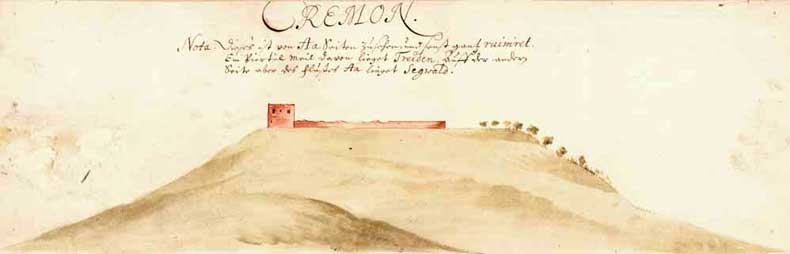 CREMON.
Nota. Dieses ist von Aa Seiten zusehen, und sonst gantz ruiniret.
Ein Viertel Meil davon lieget Treiden, Auff der andern
Seite aber des Flußes Aa lieget Segwald.